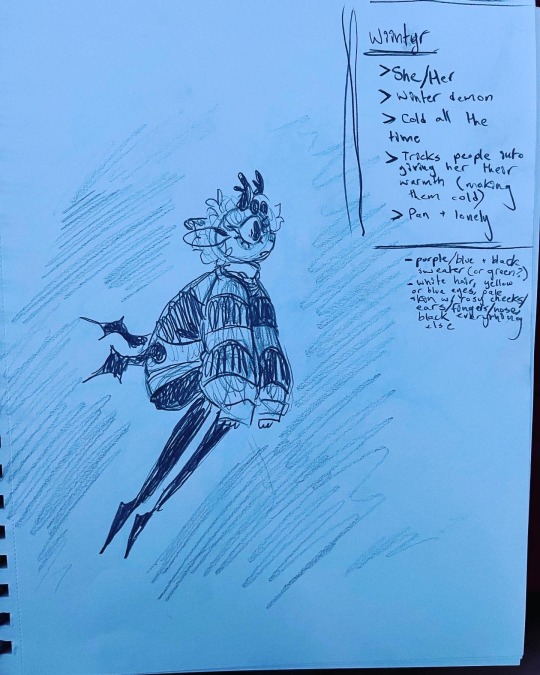 Wiintyr
> She/Her
> Winter demon
> Cold all the
time
> Tricks people into
giving her their
warmth (making
them cold)
> Pan + lonely
- purple/blue + black
sweater (or green?)
- white hair, yellow
or blue eyes, pale
skin w/ rosy cheeks/
ears/fingers/nose,
black everything
else